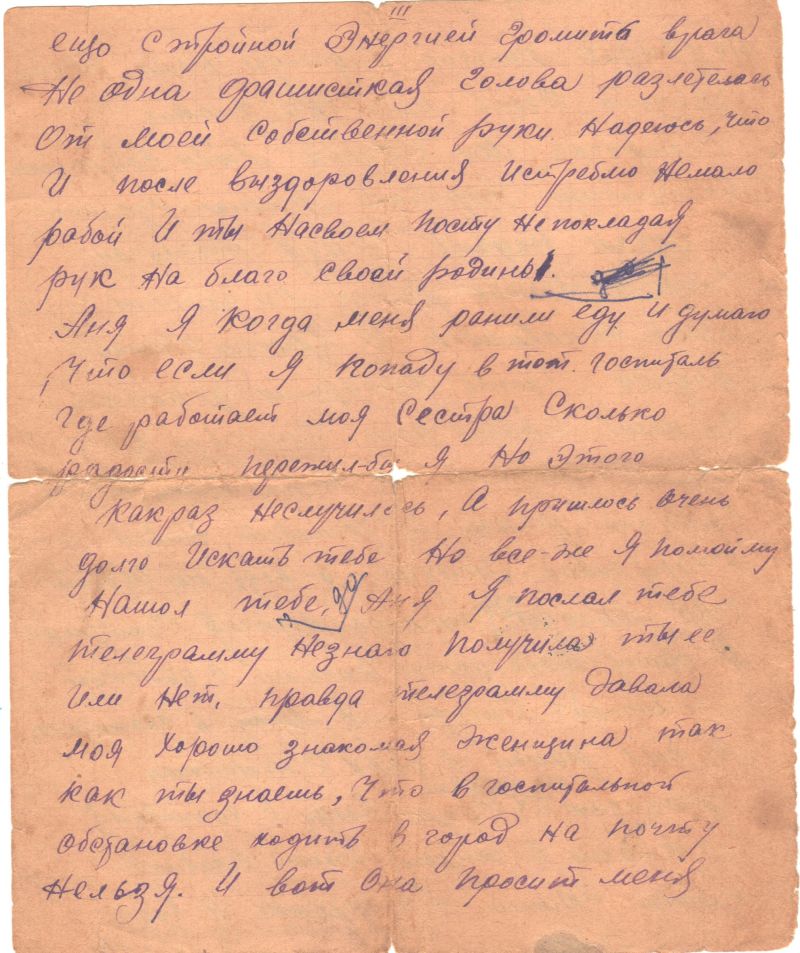 III
ещо с тройной Энергией Громить врага
Не одна фашисткая Голова разлетелась
От моей собственной руки. Надеюсь, что
И после выздоровления истреблю немало
рабой И ты Насвоем посту Непокладая
рук На благо своей родины.
Аня Я Когда меня ранили еду И думаю
, Что если Я попаду в тот госпиталь
Где работает моя Сестра Сколько
радости пережил-бы Я Но Этого
как раз Неслучилось, А пришлось очень
долго Искать тебе Но все-же Я помойму
Нашол тебе, да Аня Я послал тебе
телеграмму Незнаю получила ты ее
Или Нет, правда телеграмму давала
моя Хорошо знакомая Женщина так
как ты знаешь, Что в госпитальной
обстановке ходить в город На почту
Нельзя. И вот Она просит меня